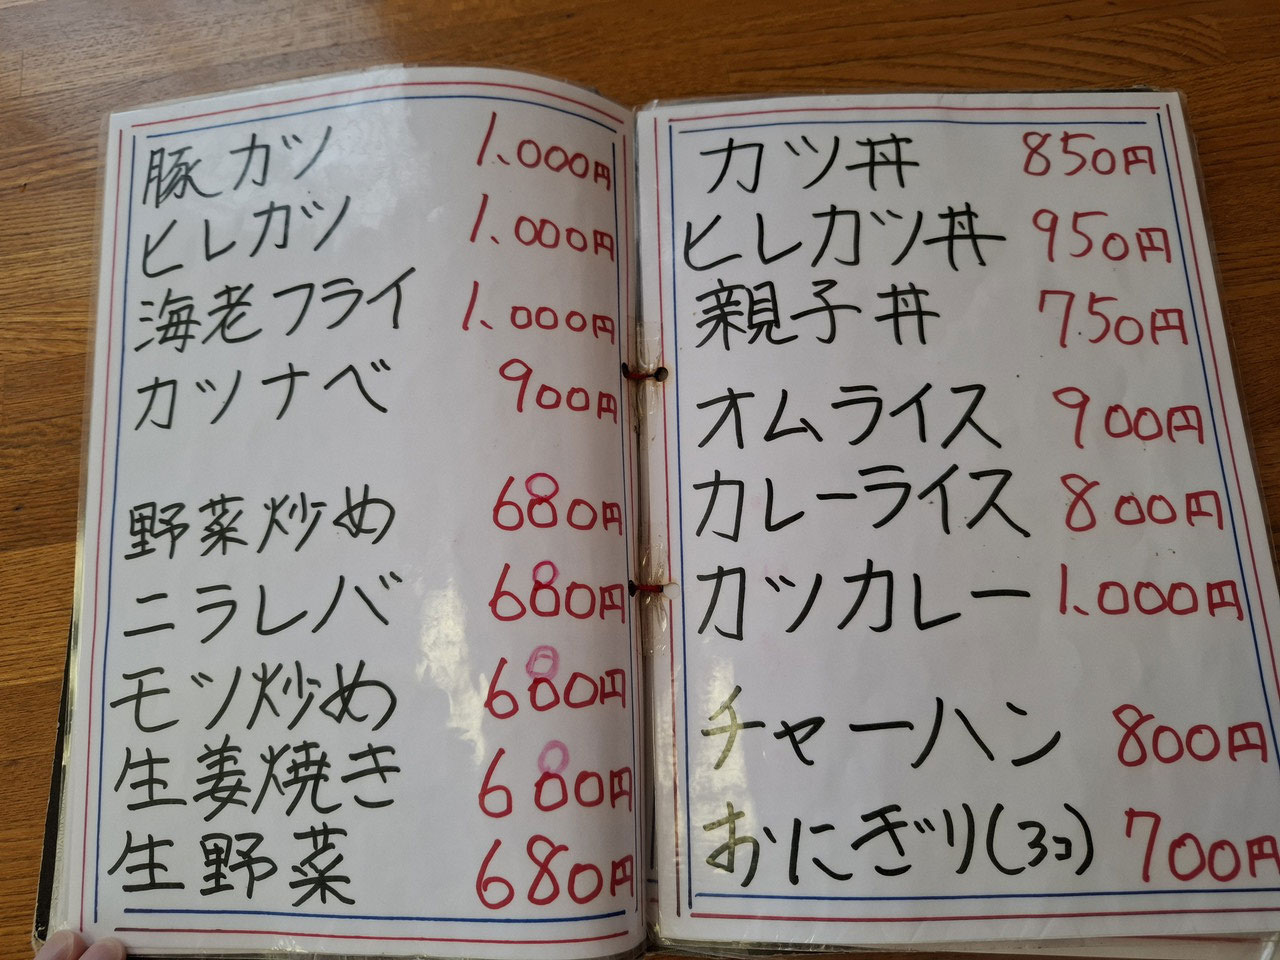 豚カツ 1.000円
ヒレカツ 1.000円
海老フライ 1.000円
カツナベ 900円
野菜炒め 680円
ニラレバ 680円
モツ炒め 680円
生姜焼き 680円
生野菜 680円
カツ丼 850円
ヒレカツ丼 950円
親子丼 750円
オムライス 900円
カレーライス 800円
カツカレー 1.000円
チャーハン 800円
おにぎり(3コ) 700円